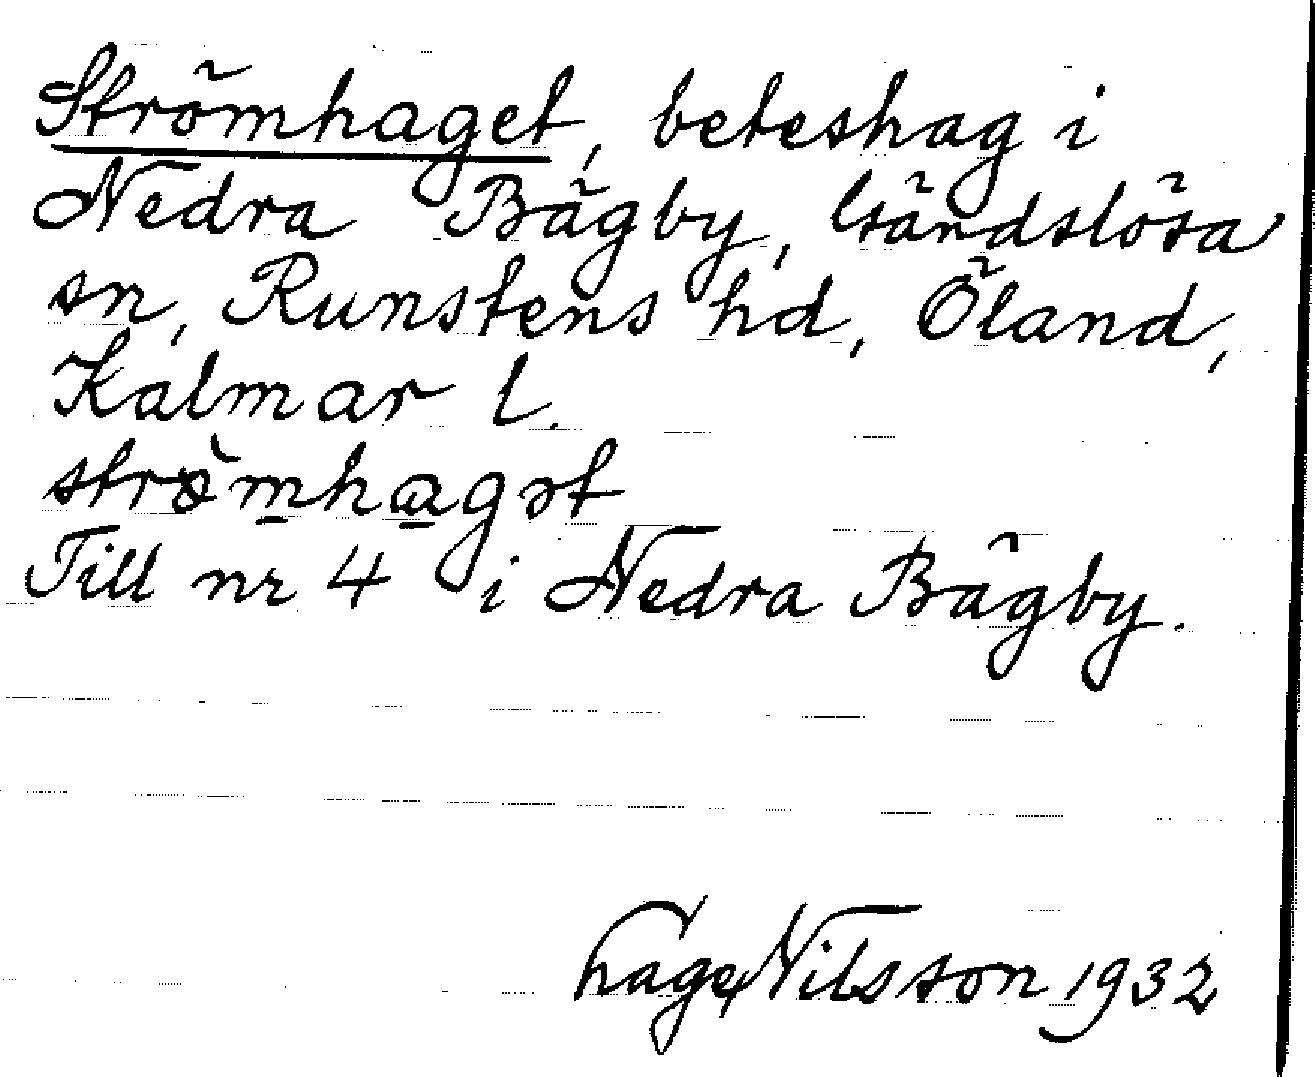 Strömhaget, beteshag i
Nedra Bägby, Gärdslösa
sn, Runstens hd, Öland,
Kalmar l.
strö̀mhagət
Till nr 4 i Nedra Bägby.
Hage Nilsson 1932